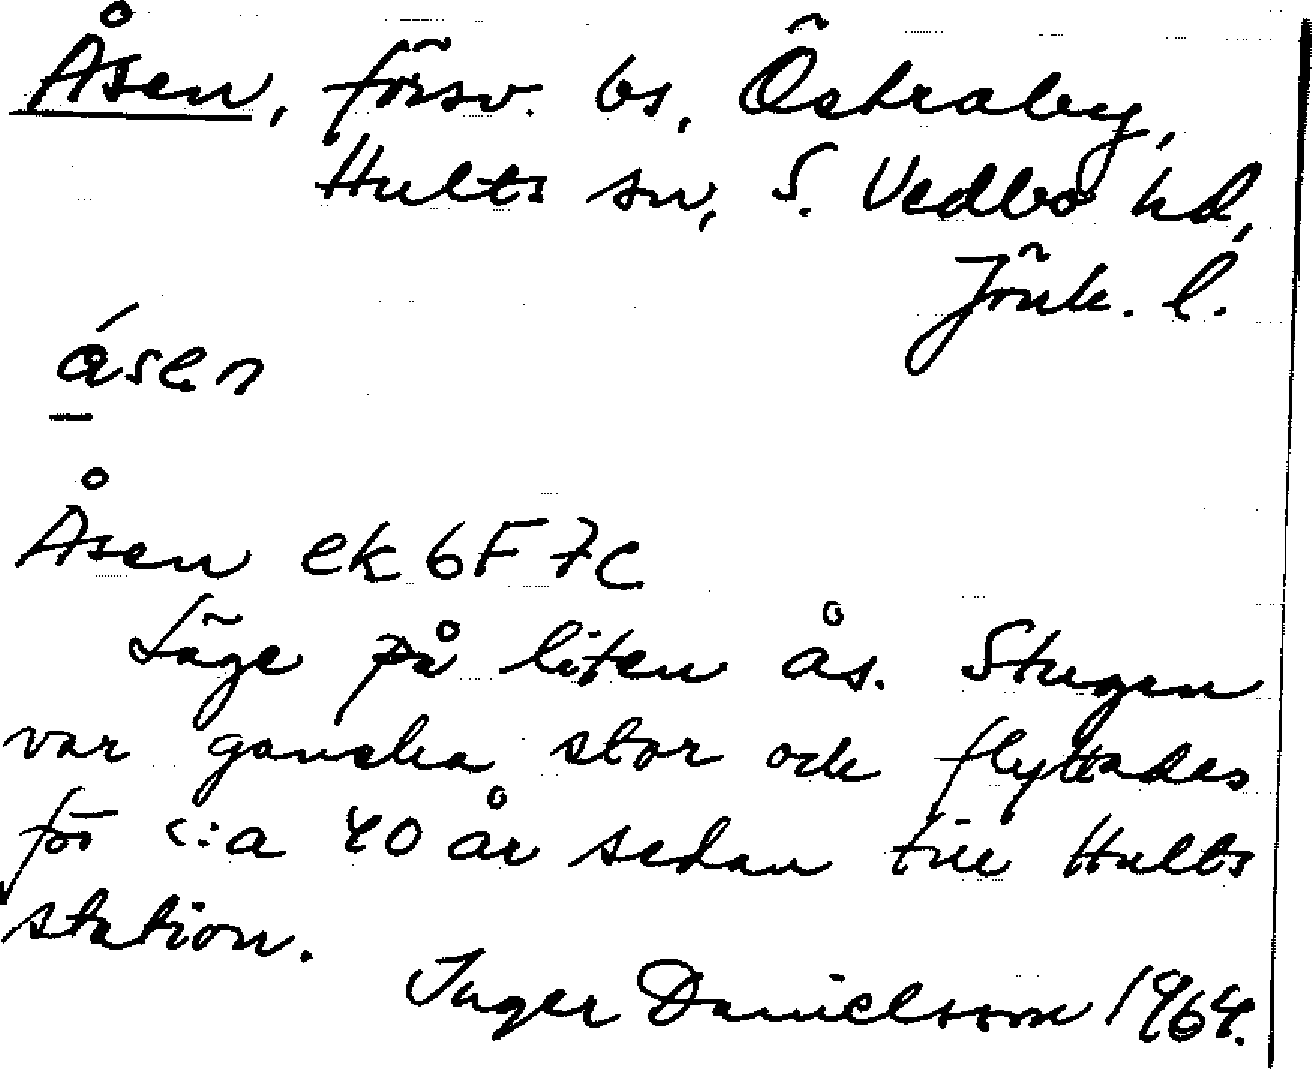 Åsen, försv. bs, Östraby,
Hults sn, S. Vedbo hd,
Jönk. l.
åsen
Åsen ek 6F 7c
Läge på liten ås. Stugan
var ganska stor och flyttades
för c:a 40 år sedan till Hults
station.
Inger Danielsson 1964.